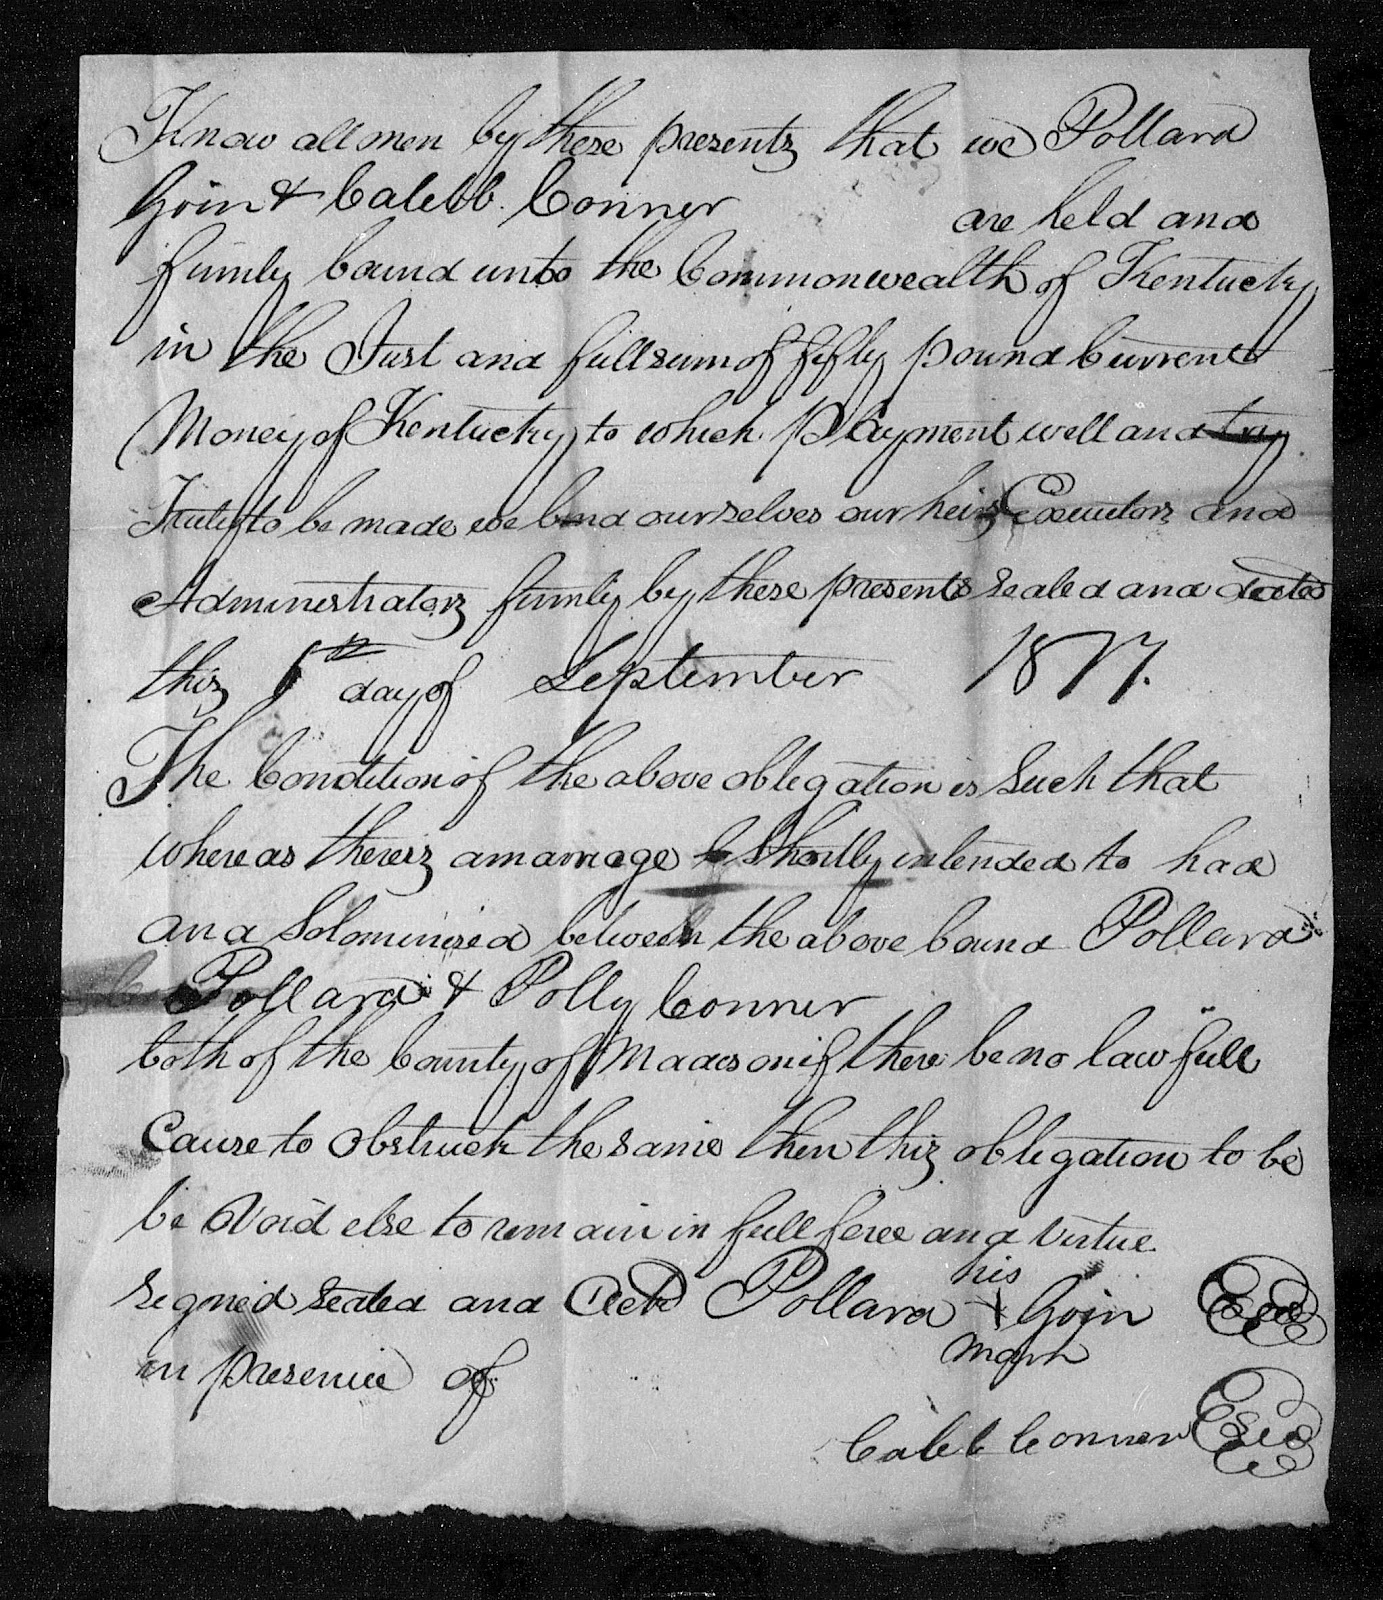 Know all men by these presents that we Pollard
Goin & Calebb. Conner are held and
firmly bound unto the Commonwealth of Kentucky
in the Just and full sum of fifty pound Current
Money of Kentucky to which payment well and try
Truly to be made we bind ourselves our heirs Executors and
Administrators firmly by these presents sealed and dated
this day of September 1817.
The Condition of the above obligation is Such that
whereas there is a marriage Shortly intended to had
and Solominised between the above bound Pollard
Pollard & Polly Conner
both of the County of Madison if there be no law full
Cause to obstruck the same then this obligation to be
be Void else to remain in full force and virtue
signed sealed and Pollard his Goin
in presence of mark
Caleb Conner